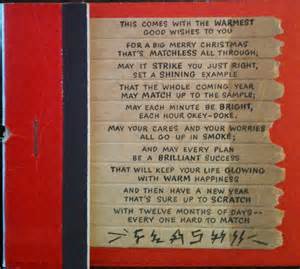 THIS COMES WITH THE WARMEST
GOOD WISHES TO YOU
FOR A BIG MERRY CHRISTMAS
THAT'S MATCHLESS ALL THROUGH,
MAY IT STRIKE YOU JUST RIGHT,
SET A SHINING EXAMPLE
THAT THE WHOLE COMING YEAR
MAY MATCH UP TO THE SAMPLE;
MAY EACH MINUTE BE BRIGHT,
EACH HOUR OKEY-DOKE,
MAY YOUR CARES AND YOUR WORRIES
ALL GO UP IN SMOKE;
AND MAY EVERY PLAN
BE A BRILLIANT SUCCESS
THAT WILL KEEP YOUR LIFE GLOWING
WITH WARM HAPPINESS
AND THEN HAVE A NEW YEAR
THAT'S SURE UP TO SCRATCH
WITH TWELVE MONTHS OF DAYS--
EVERY ONE HARD TO MATCH